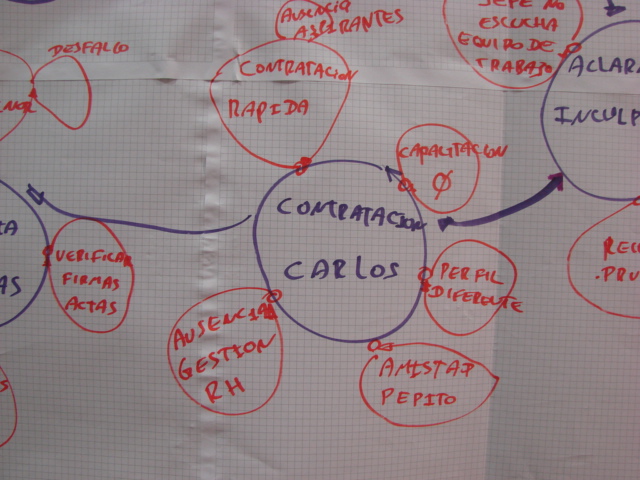 AUSENCIA
ASPIRANTES
JEFE NO
ESCUCHA
EQUIPO DE
TRABAJO
DESFALCO
CONTRATACION
RAPIDA
ACLARA
INCULP
CAPACITACION
Ø
CONTRATACION
CARLOS
VERIFICAR
FIRMAS
ACTAS
IA
AS
PERFIL
DIFERENTE
AUSENCIA
GESTION
RH
AMISTAD
PEPITO
REC
.PRU